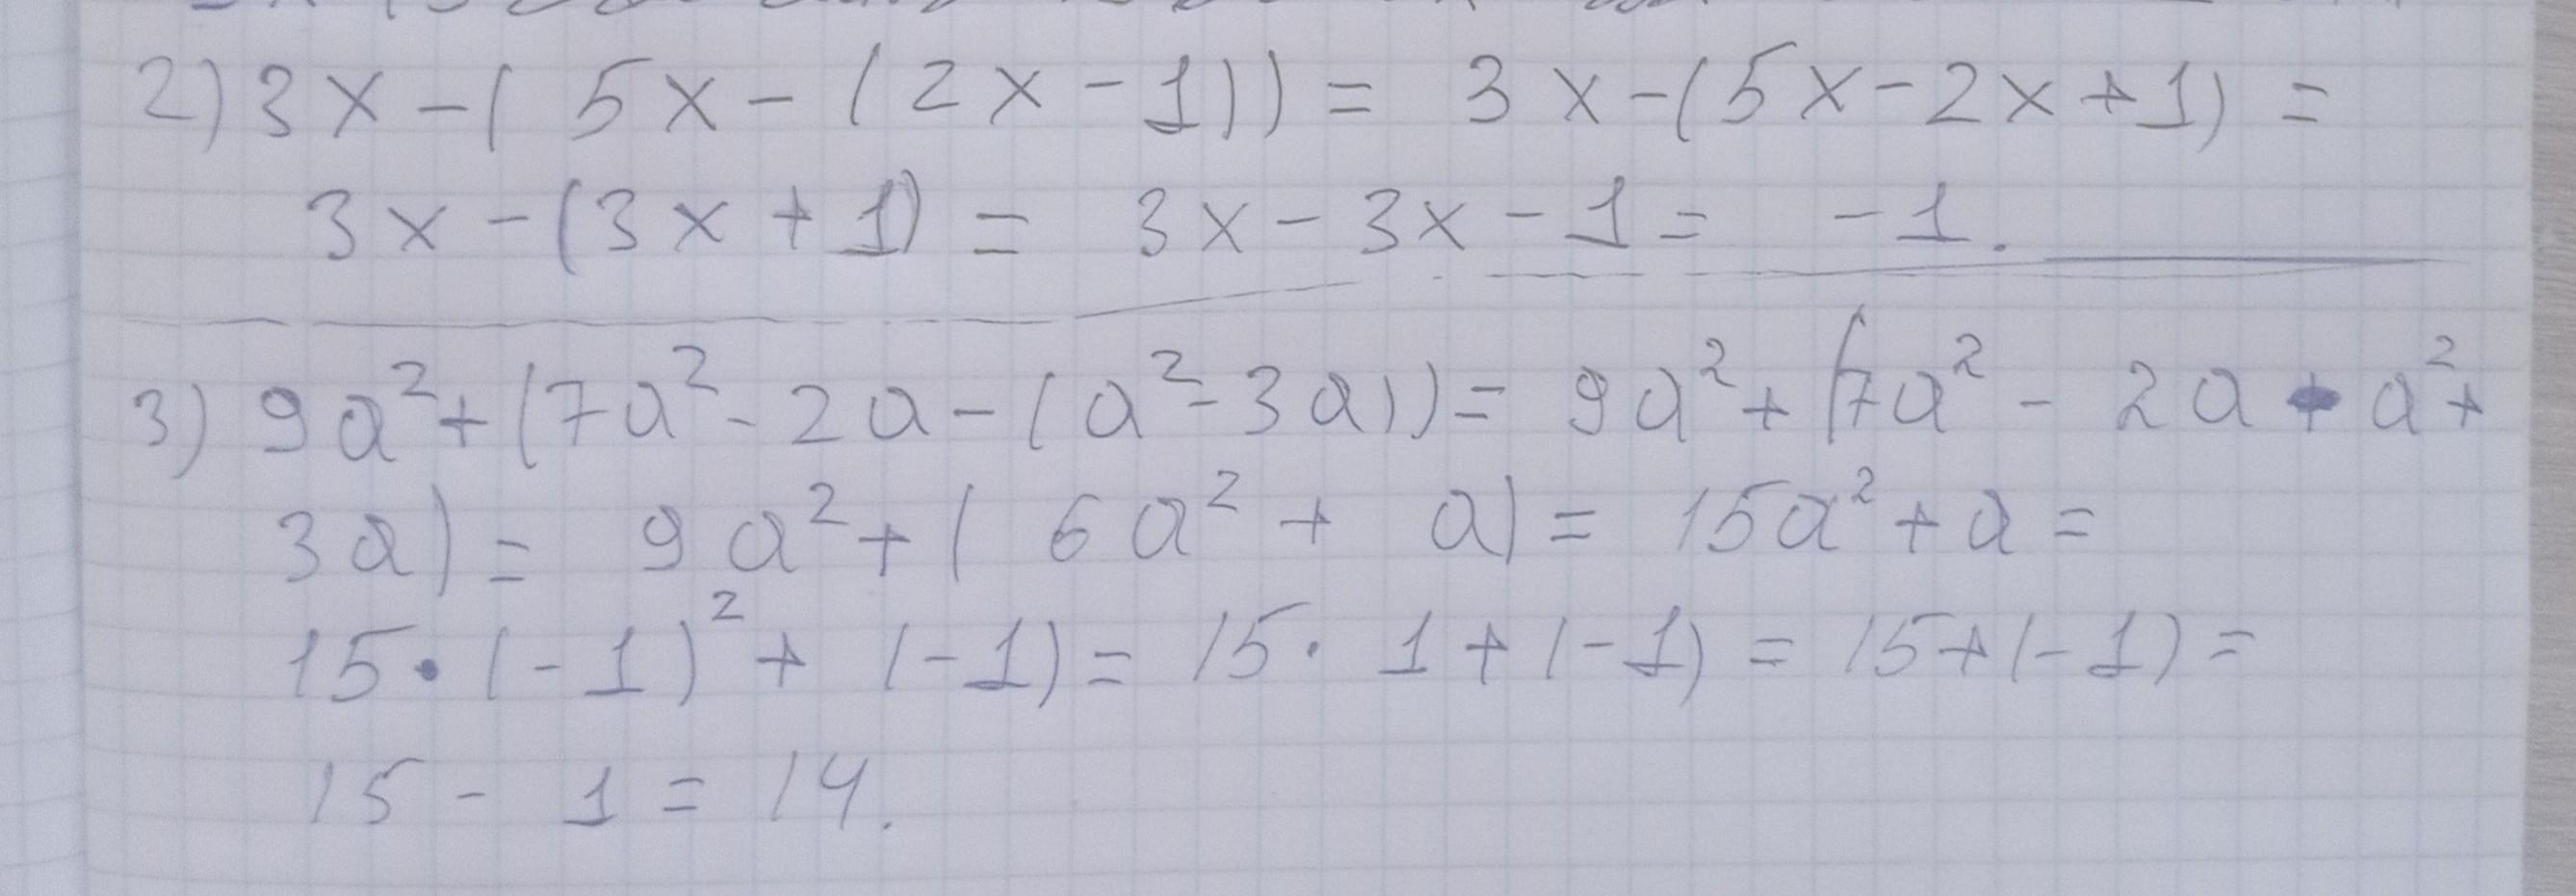 2) 3x - (5x - (2x - 1)) = 3x - (5x - 2x + 1) =
3x - (3x + 1) = 3x - 3x - 1 = -1.
3) 9a² + (7a² - 2a - (a² - 3a)) = 9a² + (7a² - 2a - a² +
3a) = 9a² + (6a² + a) = 15a² + a =
15 · (-1)² + (-1) = 15 · 1 + (-1) = 15 + (-1) =
15 - 1 = 14.